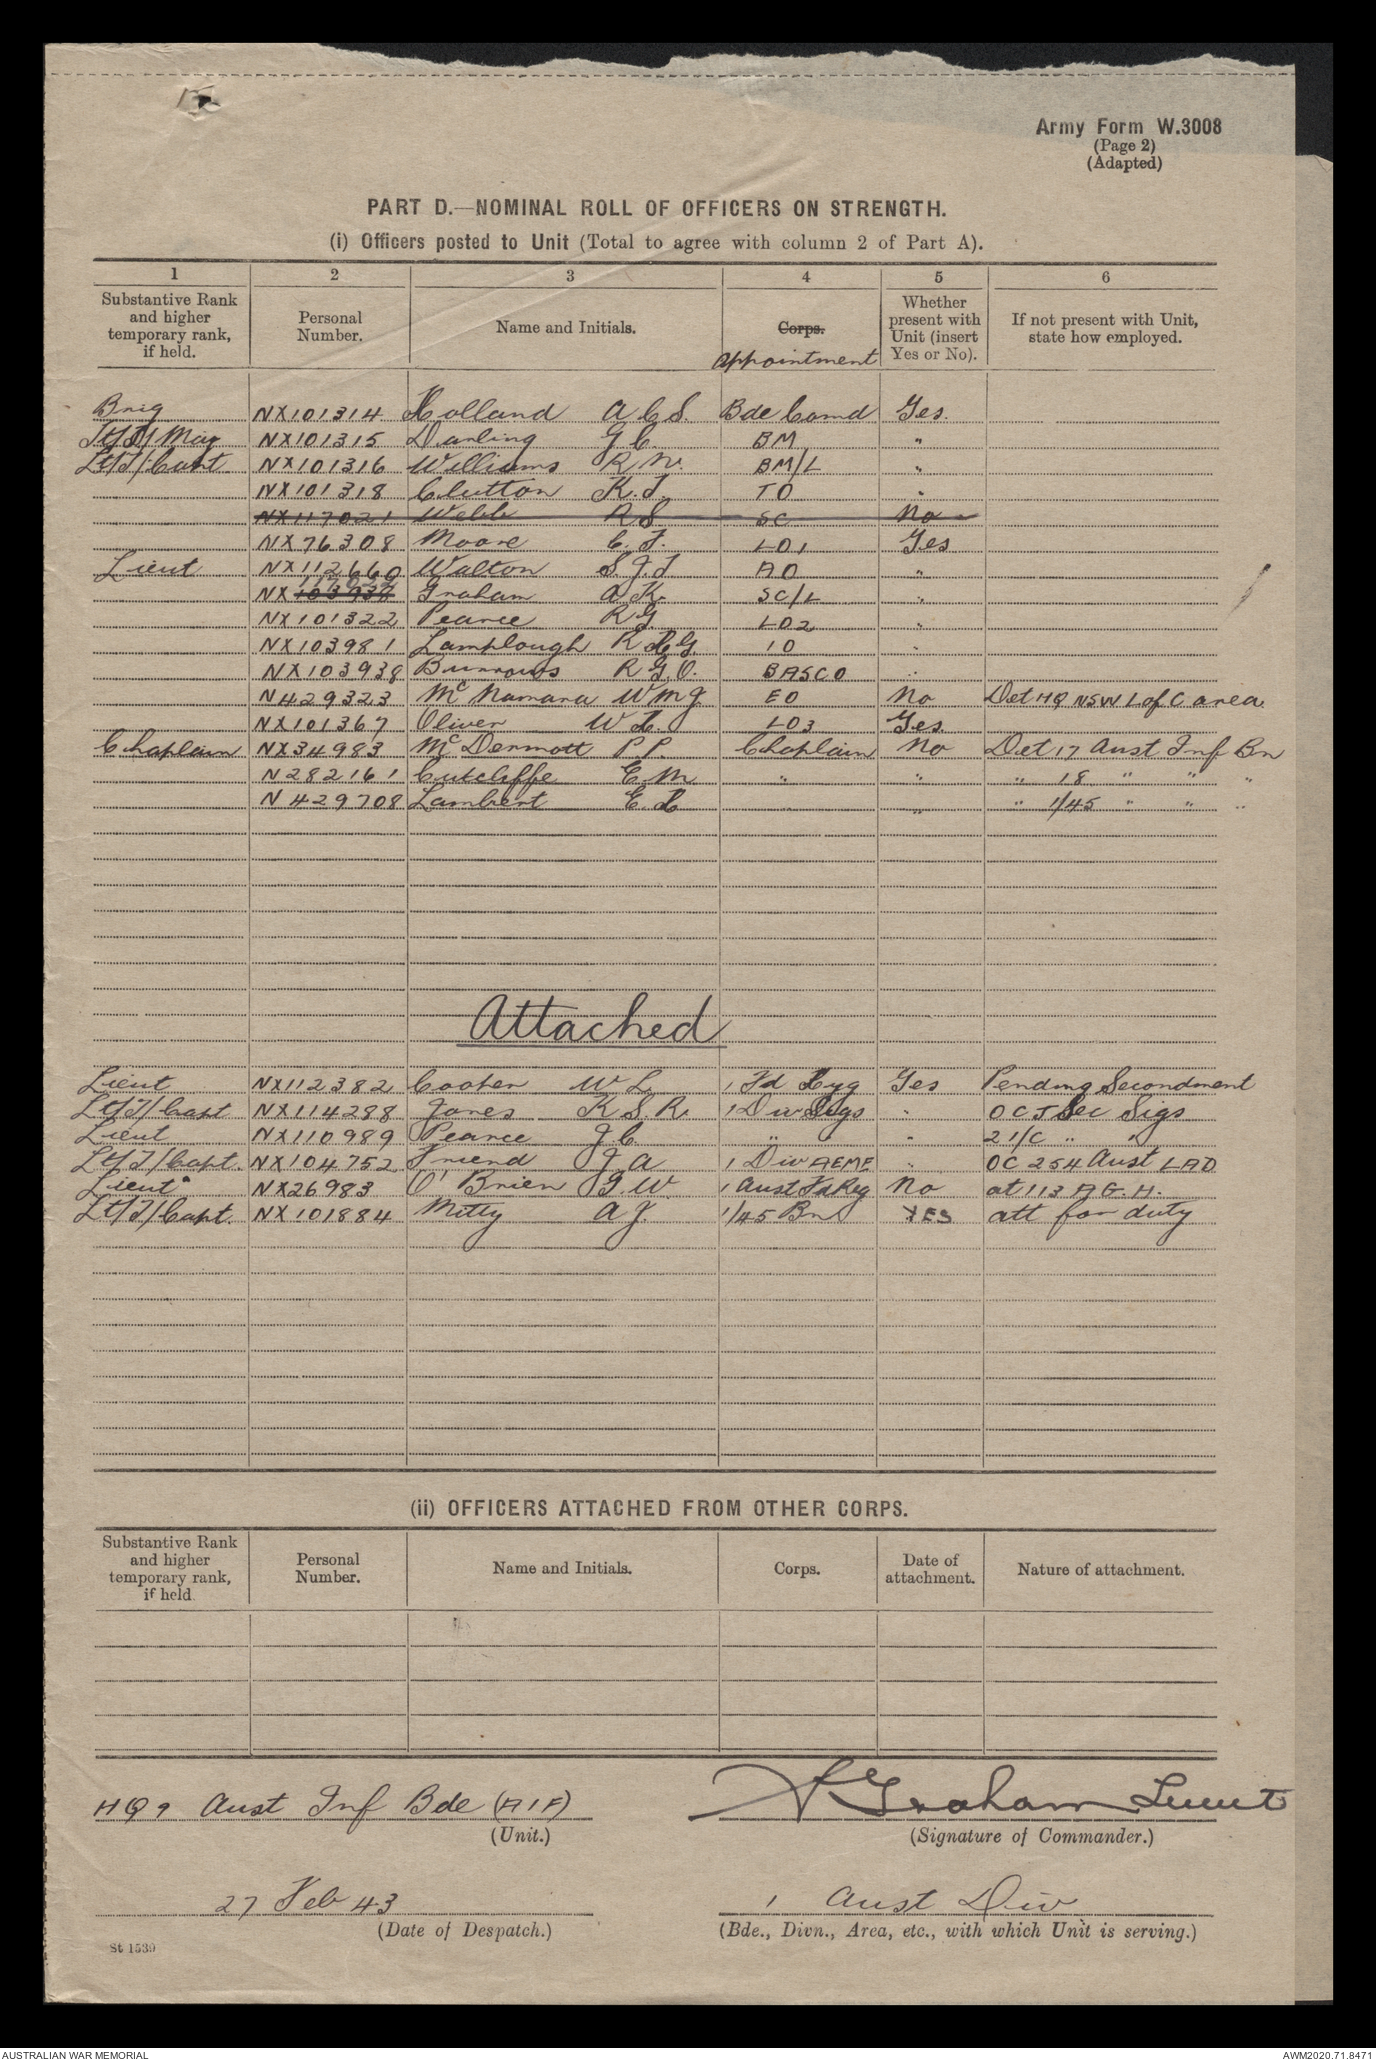 Army Form W.3008
(Page 2)
(Adapted)
PART D.—NOMINAL ROLL OF OFFICERS ON STRENGTH.
(i) Officers posted to Unit (Total to agree with column 2 of Part A).
1 2 3 4 5 6
Substantive Rank and higher temporary rank, if held. Personal Number. Name and Initials. Corps. Appointment Whether present with Unit (insert Yes or No). If not present with Unit, state how employed.
Brig NX101314 Holland A C S. Bde Comd Yes.
Maj NX101315 Darling G C. BM "
Lt/T/Capt NX101316 Williams R N. BM/L "
NX101318 Clutton K. J. TO "
NX117021 Webb R S SC No
NX76308 Moore C. J. LO1 Yes
Lieut NX112660 Walton S. J. J AO "
NX 103938 Graham A K. SC/L "
NX101322 Pearce R G LO2 "
NX103981 Lamplough R H G. IO "
NX103938 Burrows R G. O. BASCO "
N429323 McNamara W M J EO No Det HQ NSW L of C area
NX101367 Oliver W H. LO3 Yes.
Chaplain NX34983 McDermott P P. Chaplain No Det 17 Aust Inf Bn
N282161 Cutcliffe E M " " " 18 " " "
N429708 Lambert E. H " " " 1/45 " " "
Attached
Lieut NX112382 Cooper W L. 1 Fd Hyg Yes Pending Secondment
Lt/T/Capt NX114288 Jones K S. R. 1 Div Sigs " OC J Sec Sigs
Lieut NX110989 Pearce J. C. " " 2 I/C " "
Lt/T/Capt. NX104752 Friend J A 1 Div AEME " OC 254 Aust LAD
Lieut NX26983 O'Brien G. W. 1 Aust Fd Reg No at 113 A.G.H.
Lt/T/Capt. NX101884 Mitty A J. 1/45 Bn YES att for duty
(ii) OFFICERS ATTACHED FROM OTHER CORPS.
Substantive Rank and higher temporary rank, if held. Personal Number. Name and Initials. Corps. Date of attachment. Nature of attachment.
HQ 9 Aust Inf Bde (AIF) Graham Lieut
(Unit.) (Signature of Commander.)
27 Feb 43 1 Aust Div
(Date of Despatch.) (Bde., Divn., Area, etc., with which Unit is serving.)
St 1539
AUSTRALIAN WAR MEMORIAL AWM2020.71.8471